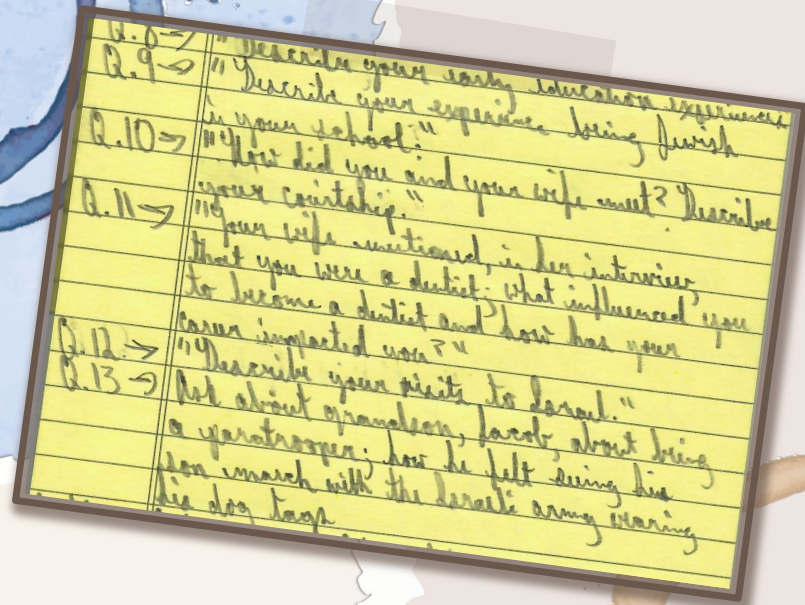 Q.8→ "Describe your early education experiences
Q.9→ "Describe your experience being Jewish
in your school."
Q.10→ "How did you and your wife meet? Describe
your courtship."
Q.11→ "Your wife mentioned, in her interview,
that you were a dentist; what influenced you
to become a dentist and how has your
career impacted you?"
Q.12→ "Describe your visits to Israel."
Q.13→ Ask about grandson, Jacob, about being
a paratrooper; how he felt seeing his
son march with the Israeli army wearing
his dog tags